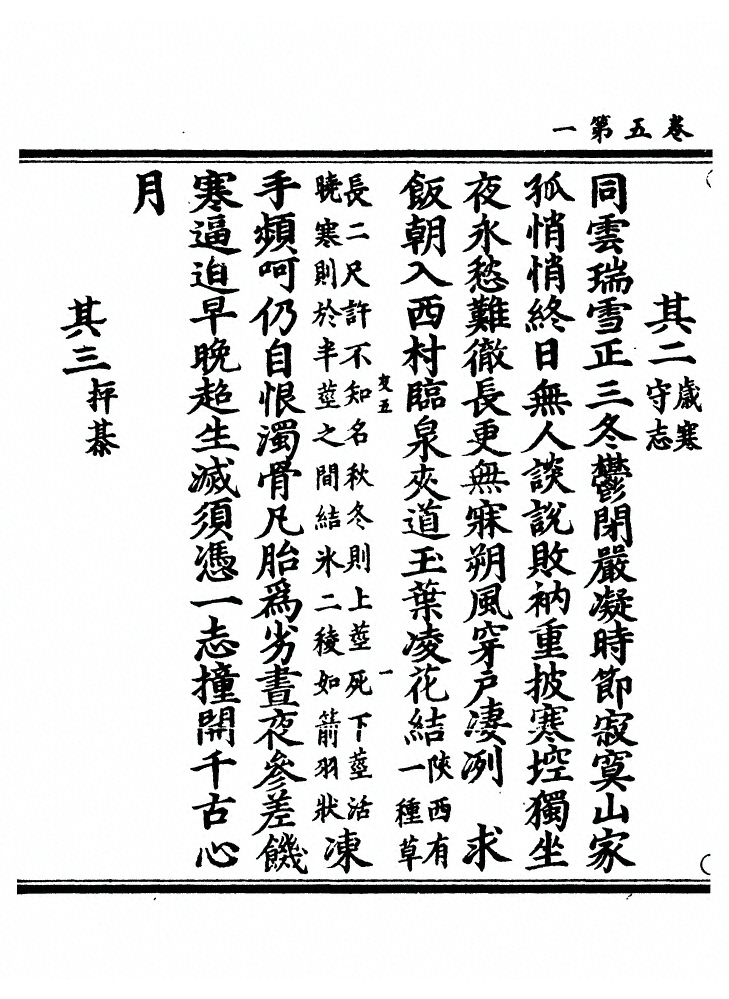 卷五第一
其二歲寒守志
同雲瑞雪正三冬鬱閉嚴凝時節寂寞山家
孤悄悄終日無人談說敗衲重披寒埪獨坐
夜永愁難徹長更無寐朔風穿戶凄冽　求
飯朝入西村臨泉夾道玉葉凌花結陝西有一種草
交五　一
長二尺許不知名秋冬則上莖死下莖活曉寒則於半莖之間結氷二稜如箭羽狀凍
手頻呵仍自恨濁骨凡胎爲劣晝夜參差饑
寒逼迫早晚超生滅須憑一志撞開千古心
月
其三抨棊